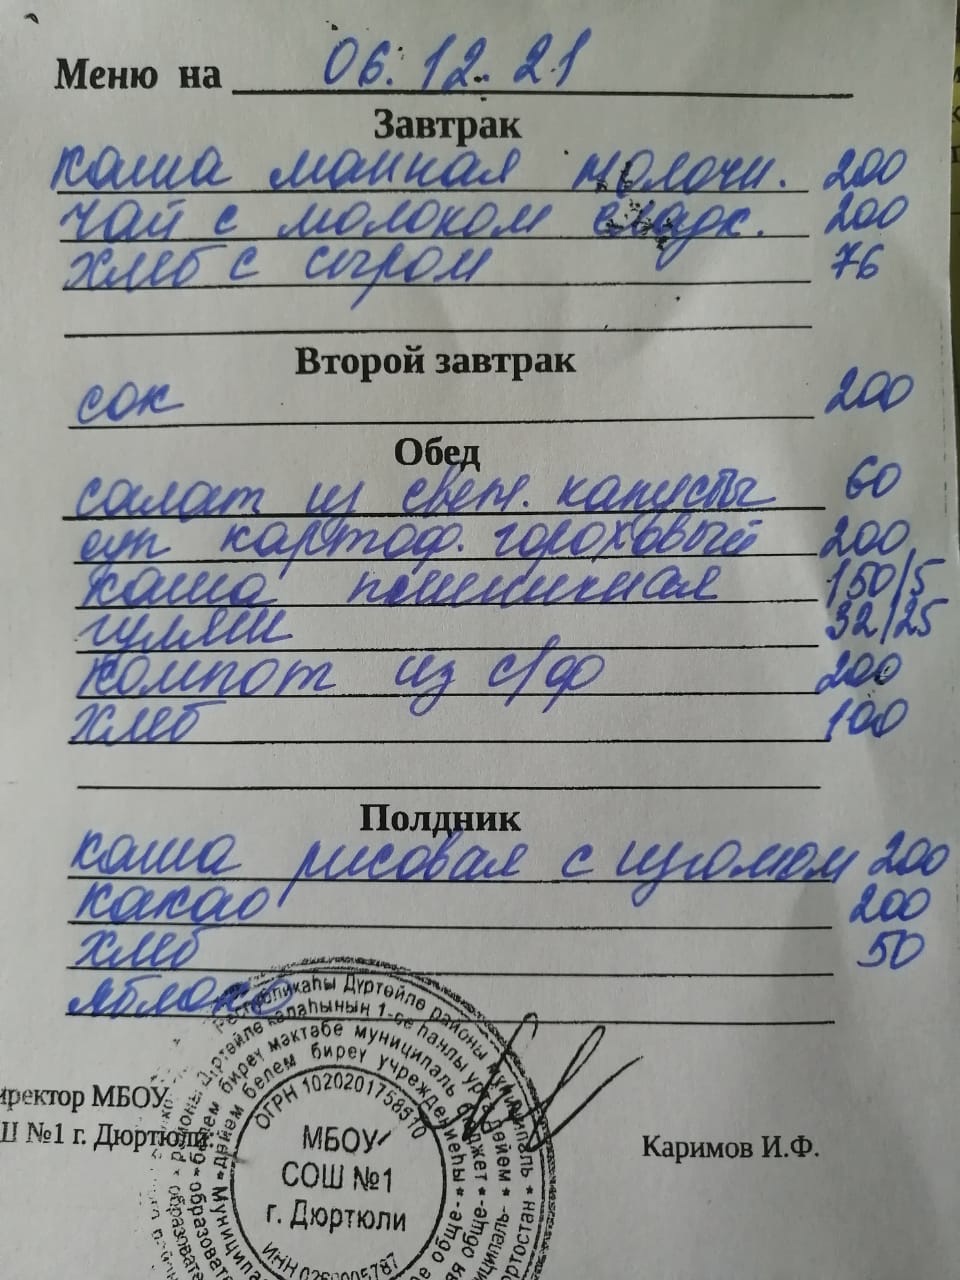 Меню на 06.12.21
Завтрак
каша манная молочн. 200
чай с молоком сладк. 200
хлеб с сыром 76
Второй завтрак
сок 200
Обед
салат из свеж. капусты 60
суп картоф. гороховый 200
каша пшеничная 150/5
гуляш 32/25
компот из с/ф 200
хлеб 100
Полдник
каша рисовая с изюмом 200
какао 200
хлеб 50
яблоко
иректор МБОУ
Ш №1 г. Дюртюли
Каримов И.Ф.
Республикаһы Дүртөйлө районы муниципаль
Дүртөйлө ҡалаһының 1-се һанлы урта дөйөм
белем биреү мәктәбе муниципаль бюджет
дөйөм белем биреү учреждениеһы
ОГРН 1020201758510
МБОУ
СОШ №1
г. Дюртюли